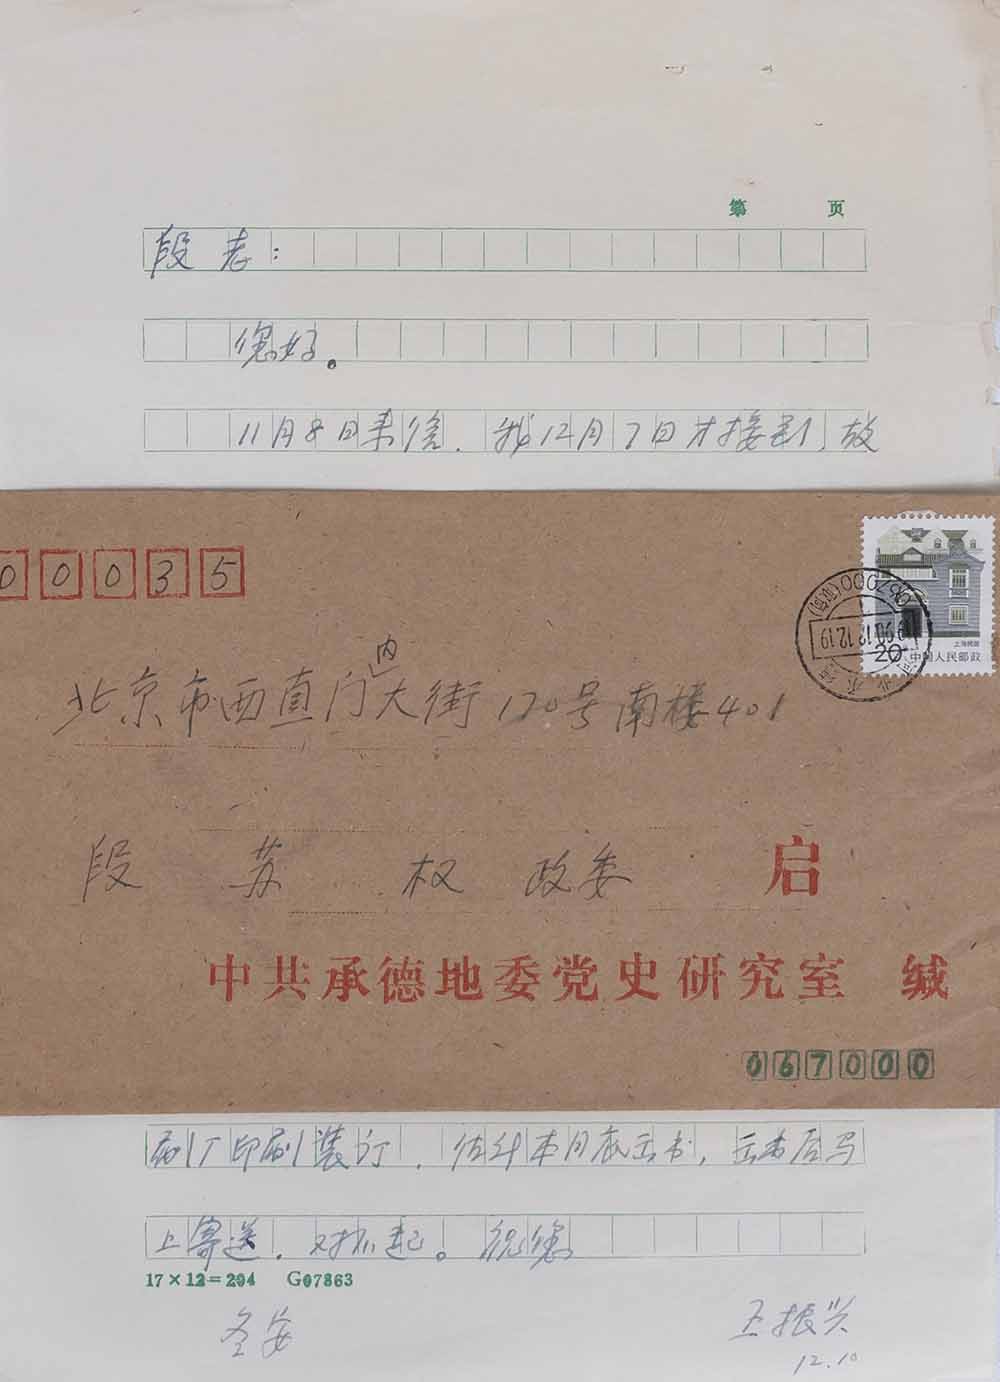 第 页
段老：
您好。
11月8日来信，我12月7日才接到，故
00035
上海民居
20 中国人民邮政
067000
1990.12.12.19
北京市西直门内大街170号南楼401
段苏权政委 启
中共承德地委党史研究室 缄
067000
刷厂印刷装订，估计本月底出书，出书后马
上寄送，对不起。祝您
17×12=204 G07863
冬安
王振兴
12.10